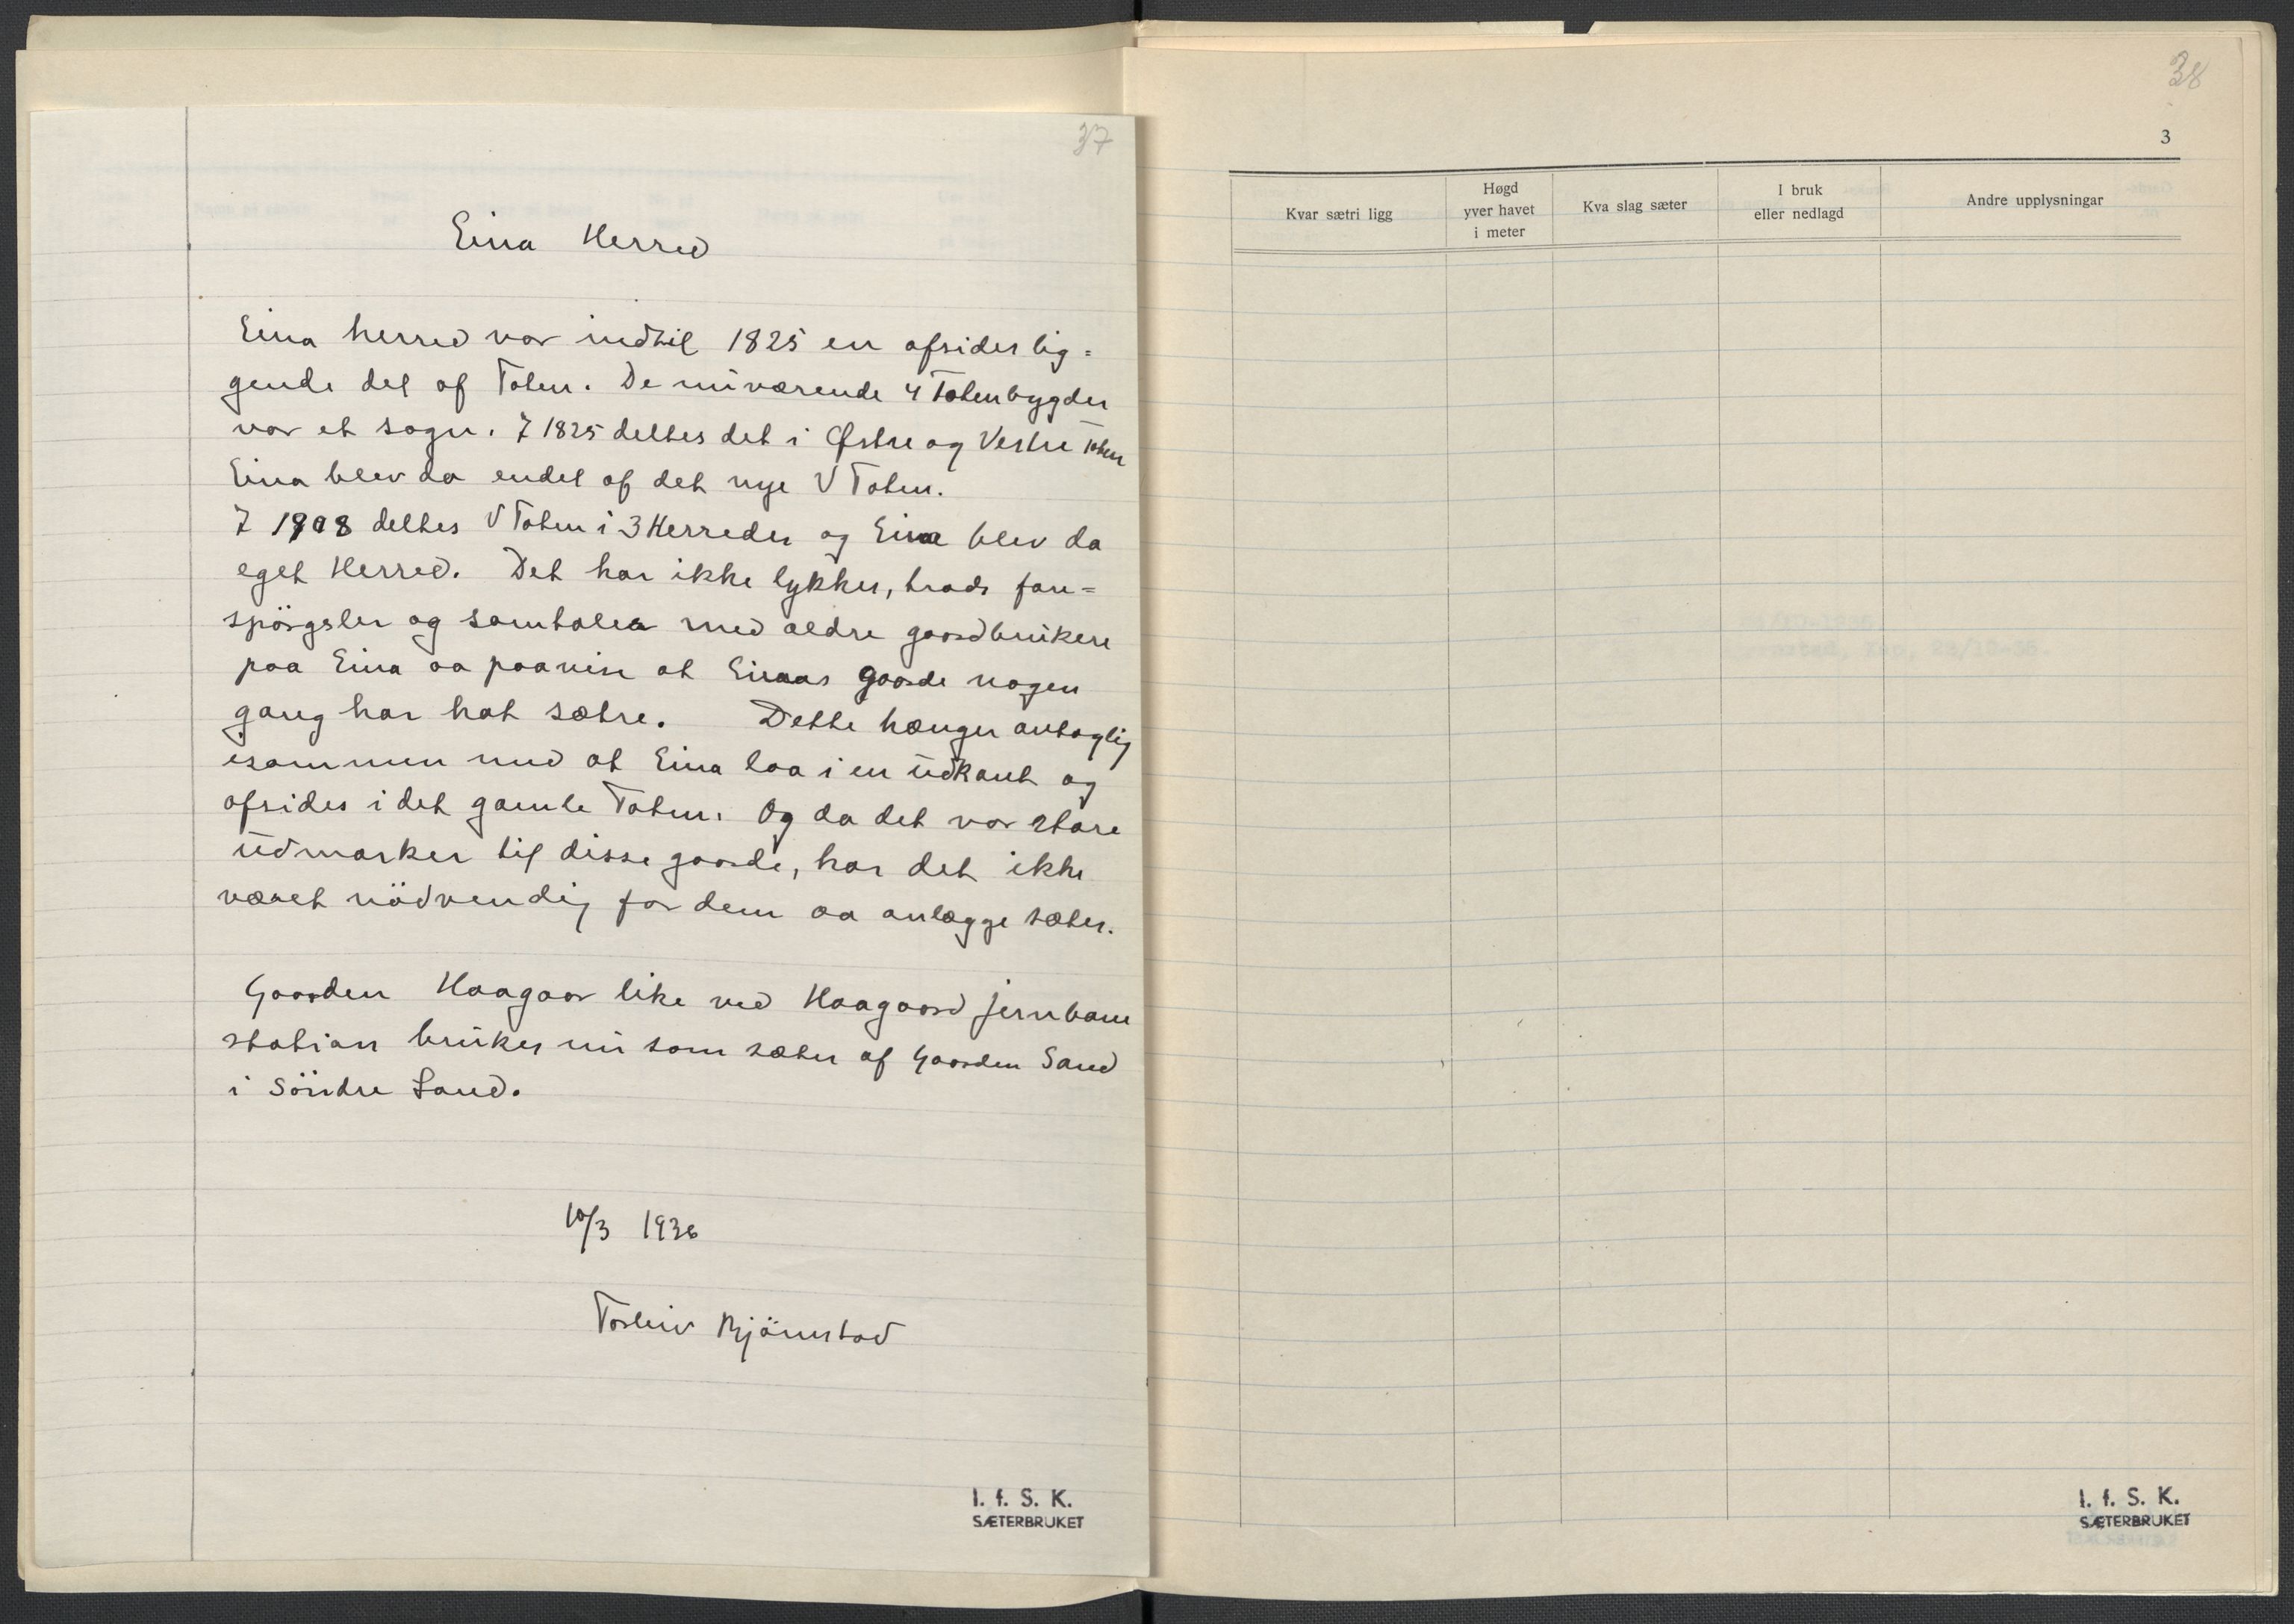 37
Eina Herred
Eina herred var indtil 1825 en afsides lig=
gende del af Toten. De nuværende 4 Totenbygder
var et sogn. I 1825 deltes det i Østre og Vestre Toten
Eina blev da endel af det nye V Toten.
I 1908 deltes V Toten i 3 Herreder og Eina blev da
eget Herred. Det har ikke lykkes, trods fore=
spörgsler og samtaler med ældre gaardbrukere
paa Eina aa paavise at Einas gaarde nogen
gang har hat sætre. Dette hænger antaglig
isammen med at Eina laa i en udkant og
afsides i det gamle Toten. Og da det var store
udmarker til disse gaarde, har det ikke
været nödvendig for dem aa anlægge sæter.
Gaarden Haagaar like ved Haagaard jernbane
station brukes nu som sæter af Gaarden Sand
i Söndre Land.
10/3 1936
Torleiv Bjönnstad
I. f. S. K.
SÆTERBRUKET
38
3
Kvar sætri ligg
Høgd
yver havet
i meter
Kva slag sæter
I bruk
eller nedlagd
Andre upplysningar
I. f. S. K.
SÆTERBRUKET